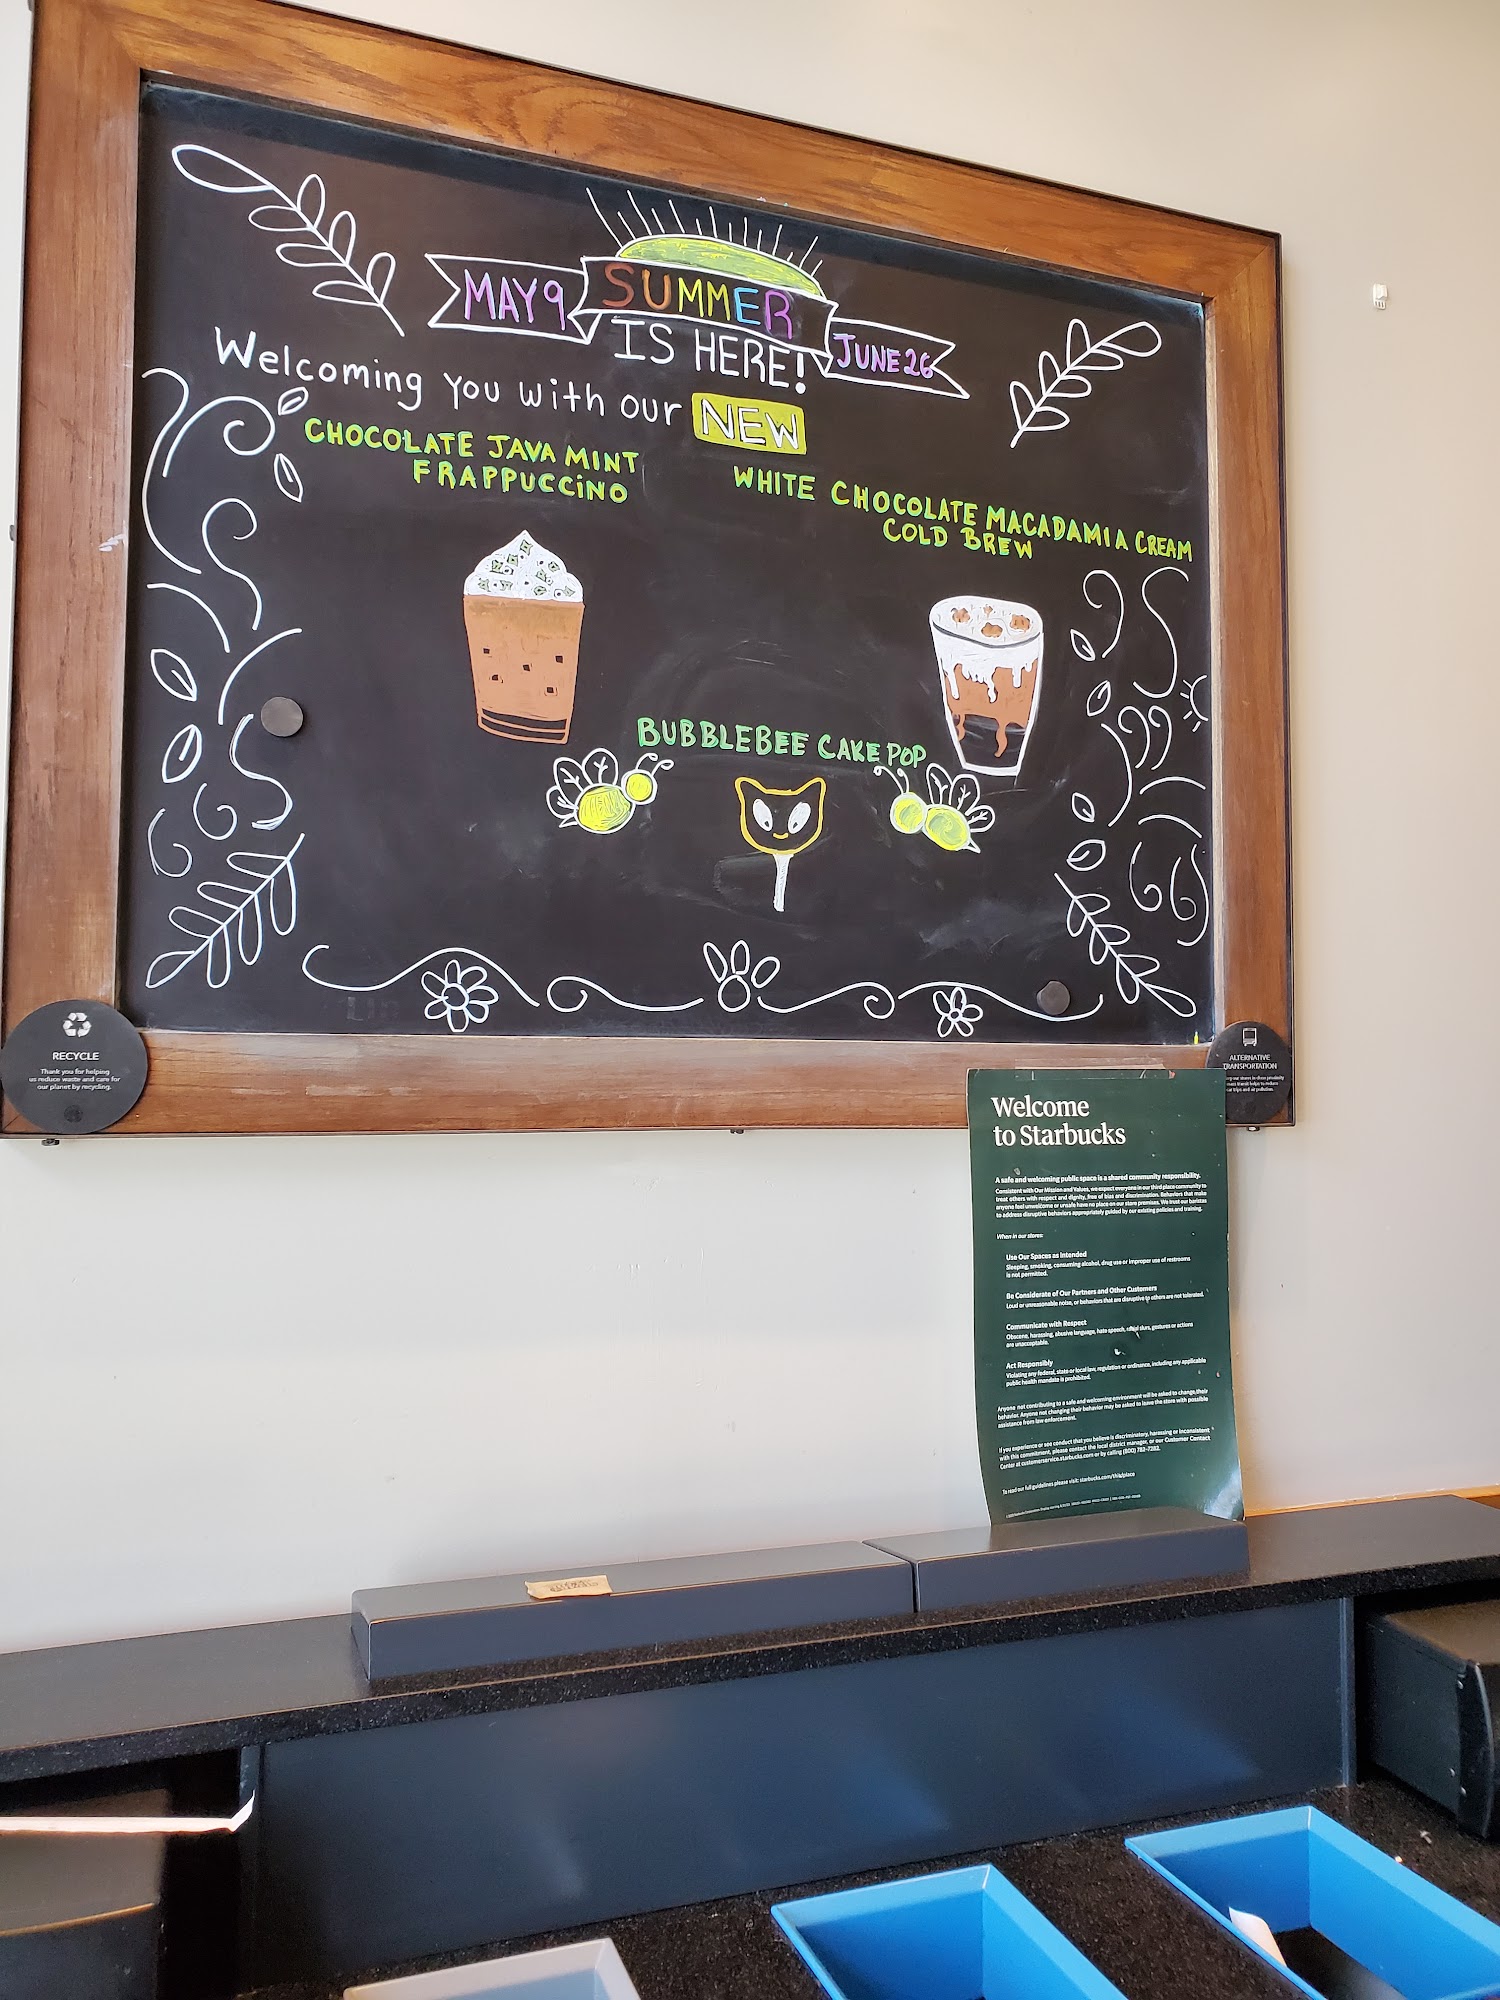 MAY 9
SUMMER
IS HERE!
JUNE 26
Welcoming you with our NEW
CHOCOLATE JAVA MINT
FRAPPUCCINO
WHITE CHOCOLATE MACADAMIA CREAM
COLD BREW
BUBBLEBEE CAKE POP
RECYCLE
Thank you for helping
us reduce waste and care for
our planet by recycling.
ALTERNATIVE
TRANSPORTATION
Welcome
to Starbucks
A safe and welcoming public space is a shared community responsibility.
Consistent with Our Mission and Values, we expect everyone in our third place community to
treat others with respect and dignity, free of bias and discrimination. Behaviors that make
anyone feel unwelcome or unsafe have no place on our store premises. We trust our baristas
to address disruptive behaviors appropriately guided by our existing policies and training.
When in our stores:
Use Our Spaces as Intended
Sleeping, smoking, consuming alcohol, drug use or improper use of restrooms
is not permitted.
Be Considerate of Our Partners and Other Customers
Loud or unreasonable noise, or behaviors that are disruptive to others are not tolerated.
Communicate with Respect
Obscene, harassing, abusive language, hate speech, racial slurs, gestures or actions
are unacceptable.
Act Responsibly
Violating any federal, state or local law, regulation or ordinance, including any applicable
public health mandate is prohibited.
Anyone not contributing to a safe and welcoming environment will be asked to change their
behavior. Anyone not changing their behavior may be asked to leave the store with possible
assistance from law enforcement.
If you experience or see conduct that you believe is discriminatory, harassing or inconsistent
with this commitment, please contact the local district manager, or our Customer Contact
Center at customerservice.starbucks.com or by calling (800) 782-7282.
To read our full guidelines please visit: starbucks.com/thirdplace